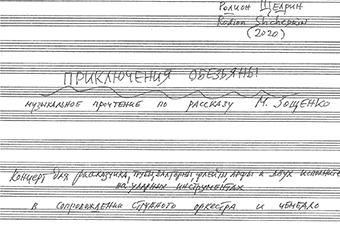 Родион Щедрин
Rodion Shchedrin
(2020)
ПРИКЛЮЧЕНИЯ ОБЕЗЬЯНЫ
музыкальное прочтение по рассказу М. Зощенко
Концерт для рассказчика, трубы, валторны, флейты, арфы и двух исполнителей
на ударных инструментах
в сопровождении струнного оркестра и чембало